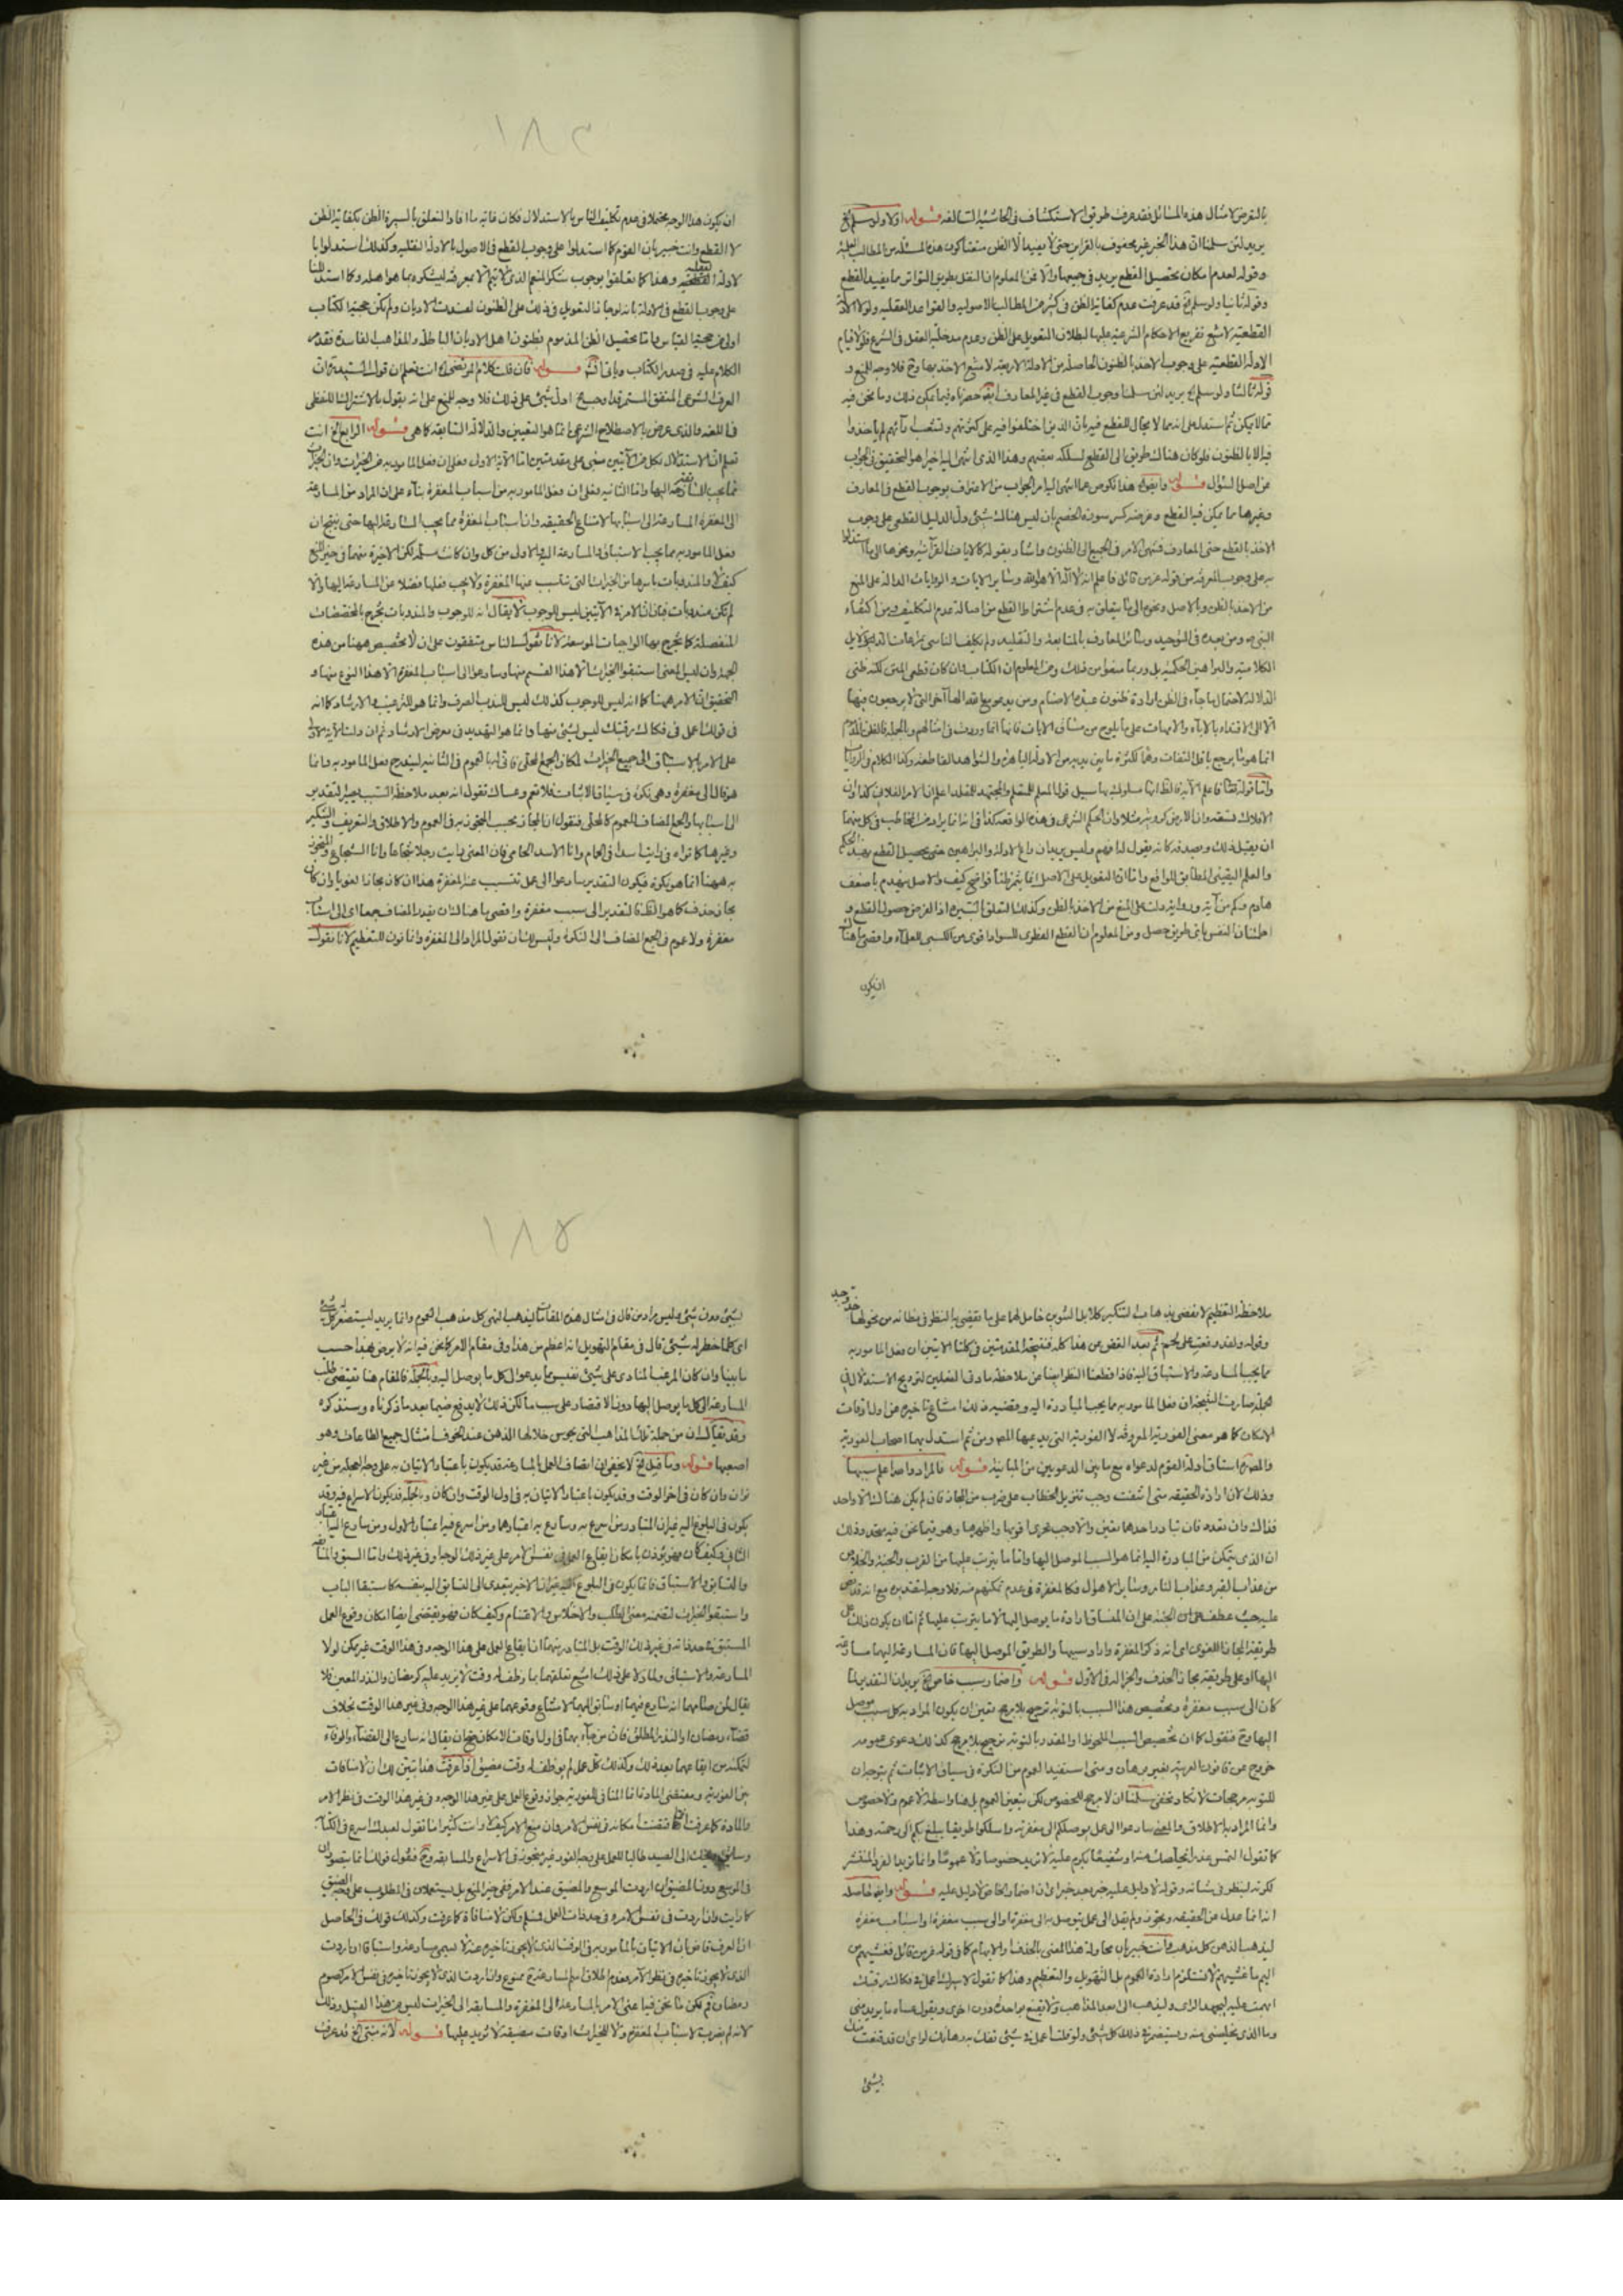 بالتعرض لامثال هذه المسائل فقد عرف طريق الاستكشاف فى الحاشية السالفه قوله اولا ولو سلم الخ
يريد لئن سلمنا ان هذا الخبر غير محفوف بالقراين حتى لا يفيد الا الظن منعنا كون هذه المسئلة من المطالب العلمية
وقوله لعدم امكان تحصيل القطع يريد فى جميعها والا فمن المعلوم ان النقل بطريق التواتر مما يفيد القطع
وقوله ثانيا ولو سلم الخ قد عرفت عدم كفاية الظن فى كثير من المطالب الاصوليه والقواعد العقليه ولولا الادلة
القطعية لامتنع تفريع الاحكام الشرعية عليها لبطلان التعويل على الظن وعدم مدخلية العقل فى الشرع فلولا قيام
الادلة القطعية على وجوب الاخذ بالظنون الحاصلة من الادلة الاربعة لامتنع الاخذ بها وح فلا وجه للمنع و
قوله ثالثا ولو سلم الخ يريد لئن سلمنا وجوب القطع فى غير المعارف ايضا خصصناه فيما يمكن ذلك وما نحن فيه
مما لا يمكن ثم استدل على انه مما لا مجال للقطع فيه بان الذين اختلفوا فيه على كثرتهم وتشعب آرائهم لم ياخذوا
فيه الا بالظنون فلو كان هنالك طريق الى القطع لسلكه بعضهم وهذا الذى انتهى اليه اخيرا هو التحقيق فى الجواب
عن اصل السؤال قوله وايضا الخ هذا نكوص عما انتهى اليه امر الجواب من الاعتراف بوجوب القطع فى المعارف
وغيرها مما يمكن فيه القطع وغرضه كسر سورة الخصم بان ليس هنالك شئ دل الدليل القطعى على وجوب
الاخذ بالقطع حتى المعارف فينتهى الامر فى الجميع الى الظنون واشار بقوله كالايات القرآنية ونحوها الى ما استدلوا
به على وجوب المعرفة من قوله عز من قائل فاعلم انه لا اله الا الله وساير الايات والروايات الدالة على المنع
من الاخذ بالظن وبالاصل ونحوه الى ما يتعلق به فى عدم اشتراط القطع من اصالة عدم التكليف ومن اكتفاء
النبى ص ومن بعده فى التوحيد وسائر المعارف بالمتابعة والتقليد ولم يكلف الناس بمراعات الدلايل
الكلامية والبراهين الحكمية بل وربما منعوا من ذلك ومن المعلوم ان الكتاب وان كان قطعى المتن لكنه ظنى
الدلالة لاحتمال ما جاء فى الظن ارادة ظنون عبدة الاصنام ومن يدعو مع الله الها آخر التى لا يرجعون فيها
الا الى الاقتداء بالاباء والامهات على ما يلوح من مساق الايات فانها انما وردت فى امثالهم وبالجملة فالظن المذموم
انما هو ما يرجع باقل التفات وهلة لكثرة ما بين يديه من الادلة الباهرة والشواهد القاطعة وكذا الكلام فى الروايات
واما قوله تعالى فاعلم الآية فالظاهر انها مسلوك بها سبيل قول المعلم للمتعلم والمجتهد للمقلد اعلم ان الامر الفلانى كذا وان
الافلاك تسعة وان الارض كروية مثلا وان الحكم الشرعى فى هذه الواقعة كذا فى انه انما يراد من المخاطب فى كل منهما
ان يقبل ذلك ويصدقه كانه يقول له افهم وليس يريد ان راع الادلة والبراهين حتى يحصل القطع بهذا الحكم
والعلم اليقينى المطابق للواقع واما ان التعويل على الاصل انما يثمر ظنا فواضح كيف والاصل ينهدم باضعف
هادم وكم من آية ورواية دلت على المنع من الاخذ بالظن وكذلك التعلق بالسيرة اذ الغرض حصول القطع و
اطمئنان النفس باى طريق حصل ومن المعلوم ان القطع الفطرى للسواد اقوى من الكسبى للعلماء واقصى ما هناك
ان يكون
١٨٤
ان يكون هذا الوجه محتملا فى عدم تكليف الناس بالاستدلال فكان غاية ما افاد التعلق بالسيرة الظن بكفاية الظن
لا القطع وانت خبير بان القوم كما استدلوا على وجوب القطع فى الاصول بالادلة النقليه وكذلك استدلوا با
لادلة العقليه وهذا كما تعلقوا بوجوب شكر المنعم الذى لا يتم الا بمعرفته ليشكره بما هو اهله وكما استدللنا
على وجوب القطع فى الادلة بانه لو جاز التعويل فى ذلك على الظنون لعددت الاديان ولم تكن حجية الكتاب
اولى من حجية القياس واما تحصيل الظن المذموم بظنون اهل الاديان الباطلة والمذاهب الفاسدة فقد مر
الكلام عليه فى صدر الكتاب قوله فان قلت كلام المرتضى الخ انت تعلم ان قول السيد ره ان
العرف الشرعى المتفق المستمر قد اوجب الخ اول شئ على ذلك فلا وجه للمنع على انه يقول بالاشتراك اللفظى
فى اللغه والذى عرض بالاصطلاح الشرعى انما هو التعيين والدلالة السابقه كما هى قوله الرابع الخ انت
تعلم ان الاستدلال بكل من الآيتين مبنى على مقدمتين اما الآية الاولى فعلى ان فعل المامور به من الخيرات وان الخيرات
مما يجب المسارعة اليها واما الثانيه فعلى ان فعل المامور به من اسباب المغفرة بناء على ان المراد من المسارعة
الى المغفرة المسارعة الى اسبابها لامتناع الحقيقه وان اسباب المغفرة مما يجب المسارعة اليها حتى ينتج ان
فعل المامور به مما يجب الاستباق والمسارعة اليه والاولى من كل وان كانت مسلمة لكن الاخيرة منهما فى حيز المنع
كيف لا والمندوبات باسرها من الخيرات التى تتسبب عنها المغفرة ولا يجب فعلها فضلا عن المسارعة اليها والا
لم تكن مندوبات فبان ان الامر فى الآيتين ليس للوجوب لا يقال انه للوجوب والمندوبات تخرج بالمخصصات
المنفصلة كما تخرج بها الواجبات الموسعة لانا نقول الناس متفقون على ان لا تخصيص ههنا من هذه
الجهة وان ليس المعنى استبقوا الخيرات الا هذا القسم منها وسارعوا الى اسباب المغفرة الا هذا النوع منها و
التحقيق ان الامر ههنا كما انه ليس للوجوب كذلك ليس للندب الصرف وانما هو للترغيب والارشاد كما انه
فى قولك اعمل فى فكاك رقبتك ليس لشئ منها وانما هو التهديد فى معرض الارشاد ثم ان دلالة الآية الاولى
على الامر بالاستباق الى جميع الخيرات لمكان الجمع المحلى فانى لها العموم فى الثانيه ليندرج فعل المامور به وانما
هو قال الى مغفرة وهى نكرة فى سياق الاثبات فلا تعم وعساك تقول انه بعد ملاحظة السبب يصير التقدير
الى اسبابها والجمع المضاف للعموم كالمحلى فنقول ان المجاز بحسب المتجوز به فى العموم والاطلاق والتعريف والتنكير
وغيرها كما تراه فى رايت اسدا فى الحمام وانا الاسد الحامى فان المعنى رايت رجلا شجاعا وانا الشجاع والمتجوز
به ههنا انما هو نكرة فيكون التقدير سارعوا الى عمل تتسبب عنه المغفرة هذا ان كان مجازا لغويا وان كان
مجاز حذف كما هو الظاهر فالتقدير الى سبب مغفرة واقصى ما هنالك ان يقدر المضاف جمعا اى الى اسباب
مغفرة ولا عموم فى الجمع المضاف الى النكرة وليس لك ان تقول المراد الى المغفرة وانما نون للتعظيم لانا نقول
ملاحظة التعظيم لا تفضى بذهاب التنكير كلا بل التنوين حامل لها على ما يقضى به النظر فى مظانه من نحو لها
وقوله ولقد وقعت على لحم ثم بعد الغض عن هذا كله فنتيجة المقدمتين فى كلتا الايتين ان فعل المامور به
مما يجب المسارعة والاستباق اليه فاذا قطعنا النظر ايضا عن ملاحظة مادة الفعلين لترويج الاستدلال فى
الجملة صارت النتيجة ان فعل المامور به مما يجب المبادرة اليه وقضية ذلك امتناع تاخيره عن اول اوقات
الامكان كما هو معنى الفورية المعروفة لا الفورية التى يدعيها المصنف ومن ثم استدل بهما اصحاب الفورية
والمصنف استاق ادلة القوم لدعواه مع ما بين الدعويين من المباينة قوله فالمراد والله اعلم سببها
وذلك لان ارادة الحقيقه متى امتنعت وجب تنزيل الخطاب على ضرب من المجاز فان لم يكن هنالك الا واحد
فذاك وان تعدد فان تبادر احدها تعين والا وجب تحرى اقربها واظهرها وهو فيما نحن فيه متحد وذلك
ان الذى يتمكن من المبادرة اليه انما هو السبب الموصل اليها واما ما يترتب عليها من القرب والجنة والخلاص
من عذاب القبر وعذاب النار وساير الاهوال فكالمغفرة فى عدم تمكنهم منه فلا وجه لتقديره مع انه قد نص
عليه حيث عطف الجنة على ان المساق ارادة ما يوصل اليها لا ما يترتب عليها ثم اما ان يكون ذلك على
طريقة المجاز اللغوى اى انه ذكر المغفرة واراد سببها والطريق الموصل اليها فان المسارعة اليهما مسارعة
اليها او على طريقة مجاز الحذف والجزالة فى الاول قوله واضمار سبب خاص الخ يريد ان التقدير لما
كان الى سبب مغفرة وتخصيص هذا السبب بالتوبة ترجيح بلا مرجح تعين ان يكون المراد به كل سبب موصل
اليها وح فنقول كما ان تخصيص السبب الملحوظ او المقدر بالتوبة ترجيح بلا مرجح كذلك دعوى عمومه
خروج عن قانون العربية بغير برهان ومتى استفيد العموم من النكرة فى سياق الاثبات ثم يتوجه ان
للتوبة مرجحات لا تكاد تخفى سلمنا ان لا مرجح للخصوص لكن يتعين العموم بل هنا واسطة لا عموم ولا خصوص
وانما المراد به الاطلاق والمعنى سارعوا الى عمل يوصلكم الى مغفرته واسلكوا طريقا يبلغ بكم الى رحمته وهذا
كما تقول التمس عذرا ينجيك منه او شفيعا يكرم عليه لا تريد خصوصا ولا عموما وانما تريد الفرد المنتشر
لكونه لينظر فى شانه وقوله لا دليل عليه خبر بعد خبر اى ان اضمار الخاص لا دليل عليه قوله وايضا الخ حاصله
انه انما عدل عن الحقيقه وتجوز ولم يقل الى عمل يتوصل به الى مغفرة او الى سبب مغفرة او اسباب مغفرة
ليذهب الذهن كل مذهب وانت خبير بان محاولة هذا المعنى بالحذف والابهام كما فى قوله عز من قائل فغشيهم من
اليم ما غشيهم لا تستلزم ارادة العموم بل التهويل والتعظيم وهذا كما تقول لاسيرك اعمل فى فكاك رقبتك
ابهمت عليه ليجهد الراى وليذهب الى ابعد المذاهب ولا يقنع بواحدة دون اخرى ويقول عساه ما يريد منى
وما الذى يخلصنى منه ويستصغر فى ذلك كل شئ ولو قلت اعمل فى شئ تفك به رهانك لراى ان قد قنعت منه
بشئ
١٨٥
بشئ دون شئ وليس مراد من قال فى امثال هذه المقامات ليذهب الذهن كل مذهب العموم وانما يريد ليستصغر كل شئ
اى كلما خطر له شئ قال فى مقام التهويل انه اعظم من هذا وفى مقام الامر كما نحن فيه انه لا يرضى بهذا حسب
ما بينا وان كان المرغب المنادى على شئ نفيس ما يدعو الى كل ما يوصل اليه وبالجملة فالمقام هنا يقتضى طلب
المسارعة الى كل ما يوصل اليها دون الاقتصار على سبب ما لكن ذلك لا يدفع ضيما بعد ما ذكرناه وسنذكره
وقد يقال ان من جملة تلك المذاهب التى يجوس خلالها الذهن عند الخوف امتثال جميع الطاعات وهو
اصعبها قوله وما قيل الخ لا يخفى ان اتصاف العمل بالمسارعة قد يكون باعتبار الاتيان به على وجه العجلة من غير
توان وان كان فى اخر الوقت وقد يكون باعتبار الاتيان به فى اول الوقت وان كان وبالجملة قد يكون الاسراع فيه وقد
يكون فى البلوغ اليه غير ان المتبادر من اسرع به وسارع به اعتبارها ومن اسرع فيه اعتبار الاول ومن سارع اليه اعتبار
الثانى وكيف كان فهو يؤذن بامكان ايقاع العمل فى نفس الامر على غير ذلك الوجه او فى غير ذلك واما السبق والمسابقة
والتسابق والاستباق فانما يكون فى البلوغ اليه غير ان الاخير يتعدى الى السابق اليه بنفسه كاستبقا الباب
واستبقوا الخيرات لتضمنه معنى الطلب والاختلاس والاغتنام وكيف كان فهو يقتضى ايضا امكان وقوع العمل
المستبق فى حد ذاته فى غير ذلك الوقت بل المتبادر منهما ان ايقاع العمل على هذا الوجه وفى هذا الوقت غير ممكن لولا
المسارعة والاستباق ولما دلا على ذلك امتنع تعلقهما بما وظف له وقت لا يزيد عليه كرمضان والنذر المعين فلا
يقال لمن صامهما انه سارع فيهما او سابق اليهما لامتناع وقوعهما على غير هذا الوجه وفى غير هذا الوقت بخلاف
قضاء رمضان او النذر المطلق فان من جاء بهما فى اول اوقات الامكان يصح ان يقال انه سارع الى القضاء والوفاء
لتمكنه من ايقاعهما بعد ذلك وكذلك كل عمل لم يوظف له وقت مضيق اذا عرفت هذا تبين لك ان لا منافات
بين الفورية ومقتضى المادة انما المنافى للفورية جواز وقوع العمل على غير هذا الوجه وفى غير هذا الوقت فى نظر الامر
والمادة كما عرفت انما تقتضى امكانه فى نفس الامر وان منع الامر كيف لا وانت كثيرا ما تقول لعبدك اسرع فى الكتابة
وسابق الى الصيد طالبا للعمل على وجه الفور غير متجوز فى الاسراع والمسابقه وح فنقول قولك انما يتصوران
فى الموسع دون المضيق ان اردت الموسع والمضيق عند الامر ففى حيز المنع بل يستعملان فى المطلوب على وجه الضيق
كما رايت وان اردت فى نفس الامر وفى حد ذات العمل فمسلم ولكن لا منافاة كما عرفت وكذلك قولك فى الحاصل
ان العرف قاض بان الاتيان بالمامور به فى الوقت الذى لا يجوز تاخيره عنه لا يسمى مسارعة واستباقا ان اردت
الذى لا يجوز تاخيره فى نظر الآمر فعدم اطلاق اسم المسارعة ممنوع وان اردت الذى لا يجوز تاخيره فى نفس الامر كصوم
رمضان لم يكن مما نحن فيه اعنى الامر بالمسارعة الى المغفرة والمسابقه الى الخيرات ليس من هذا القبيل وذلك
لانه لم يضرب لاسباب المغفرة ولا للخيرات اوقات مضيقة لا تزيد عليها قوله لانه مبنى الخ قد عرفت